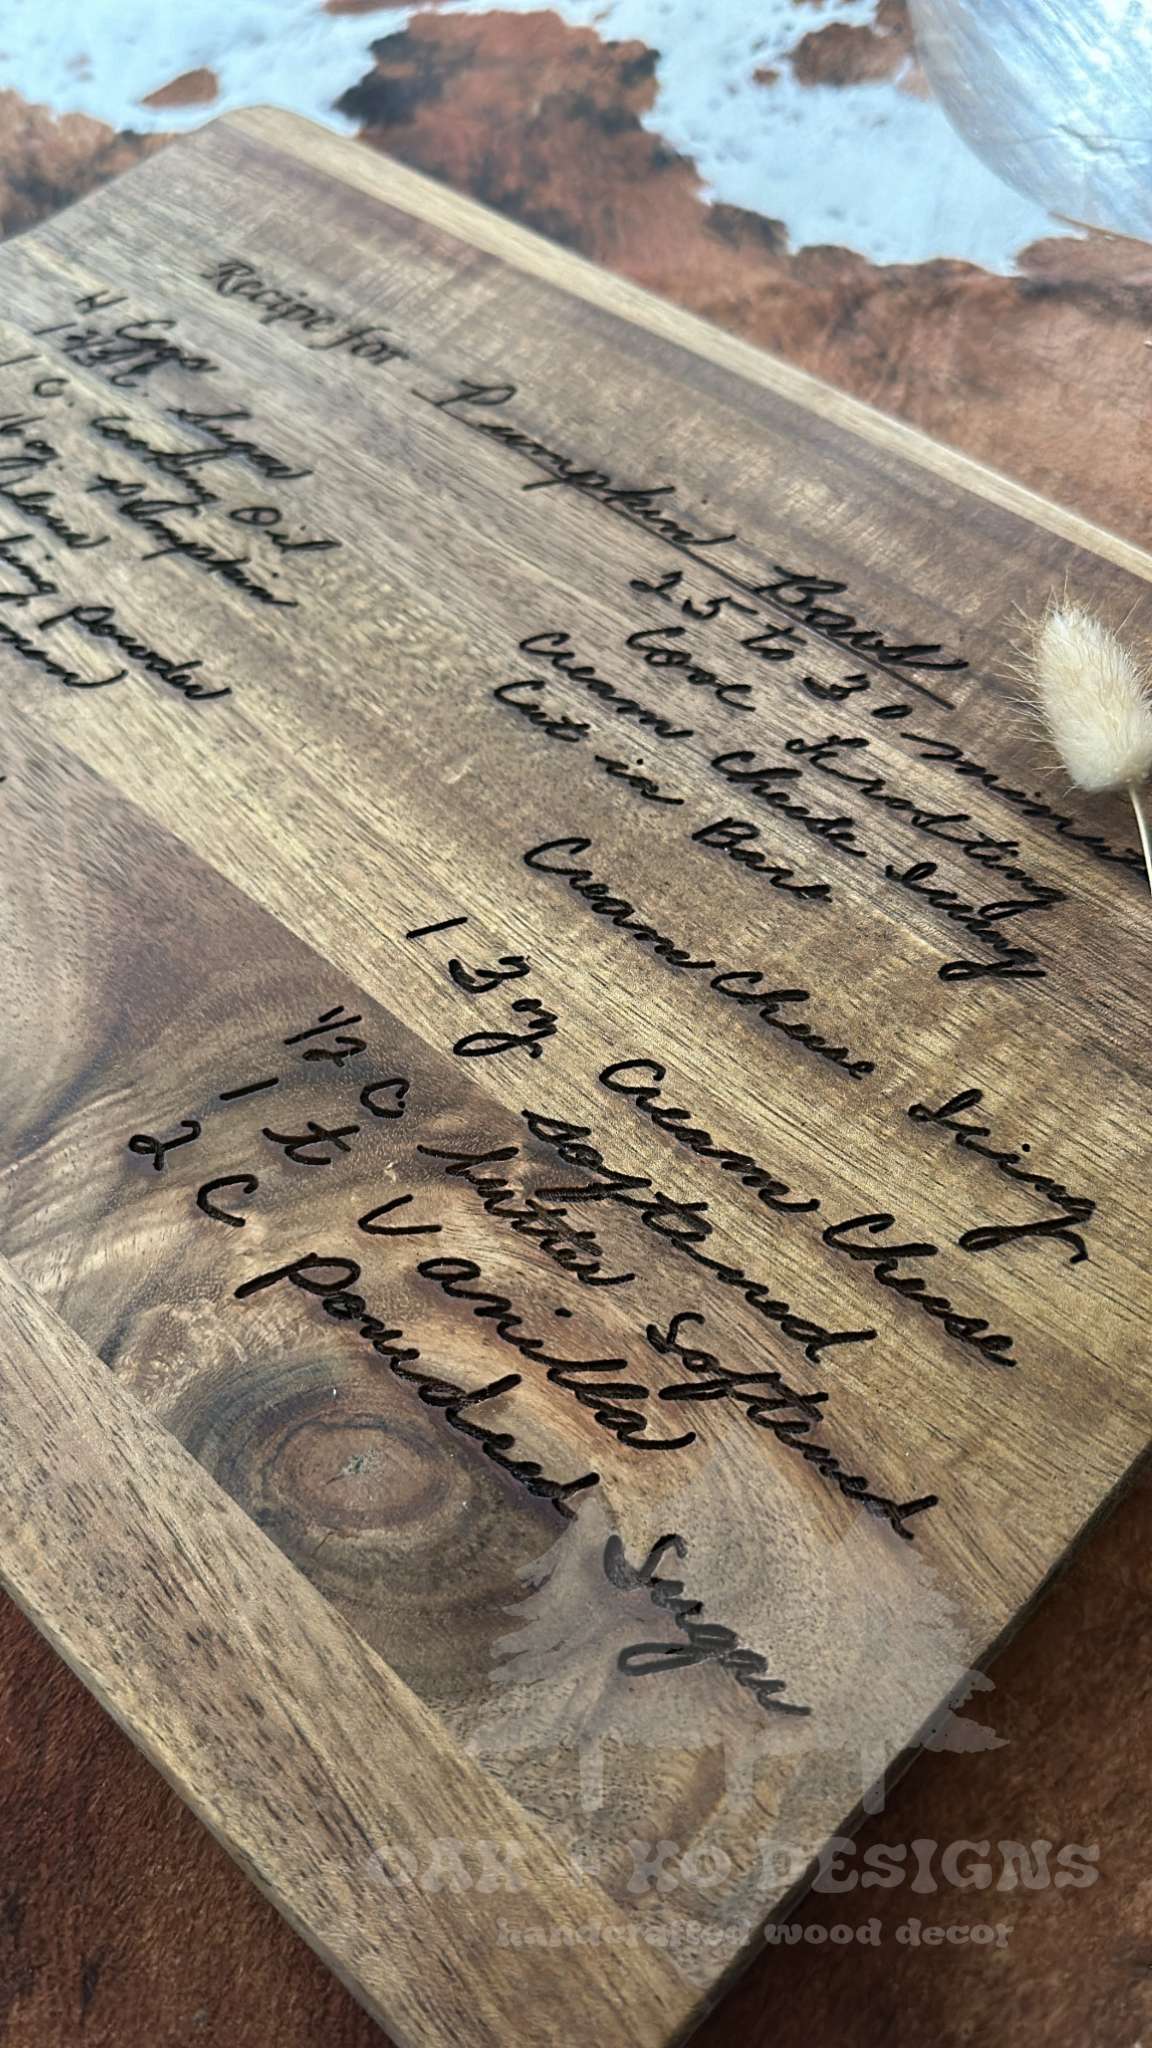 Recipe for Pumpkin Bars
4 Eggs
Sugar
1 C. Cooking Oil
16 oz. Pumpkin
Powder
25 to 30 minut
Cool Frosting
Cream Cheese Icing
Cut in Bars
Cream Cheese Icing
1 3 oz Cream Cheese
softened
1/2 C butter softened
1 t Vanilla
2 C Powdered Sugar
OAK + KO DESIGNS
handcrafted wood decor